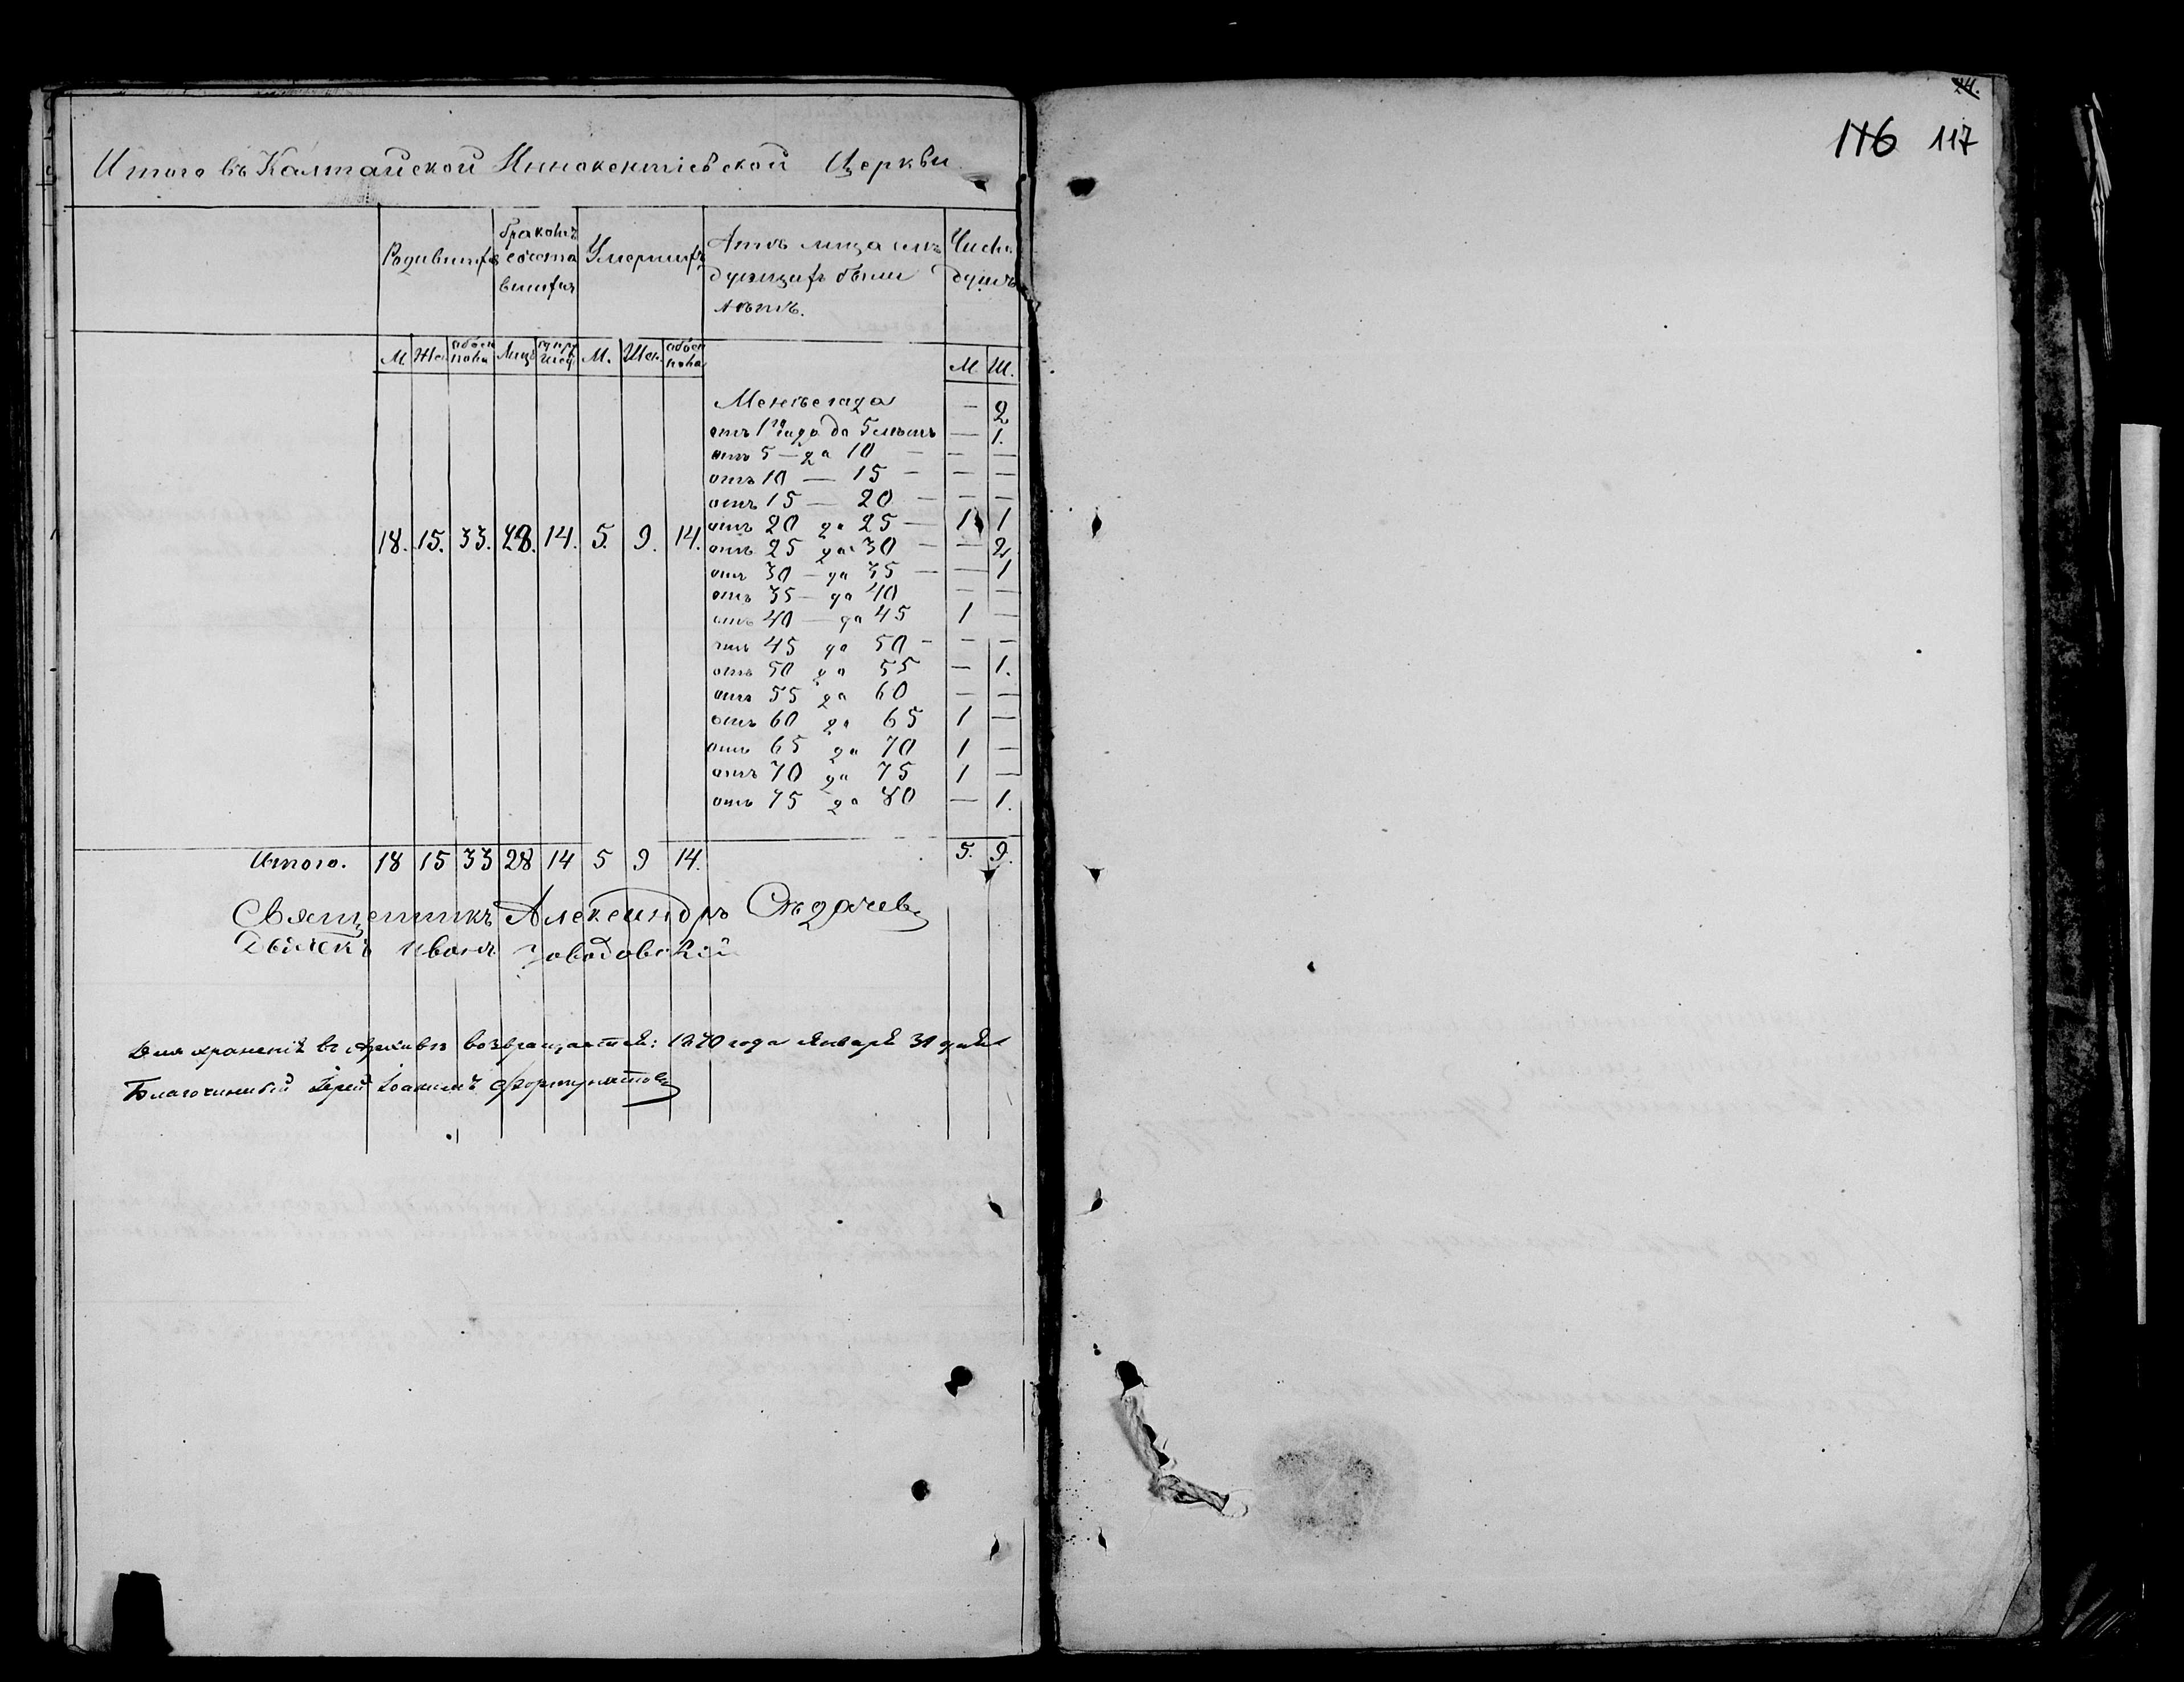 Итого въ Калтайской Иннокентіевской Церкви
Родившихъ
бракомъ
сочета
вшихъ
Умершихъ
Лѣтъ
были
лѣтъ.
Число
душъ
М. Же. обоего пола Лицъ М. Жен. обоего пола
М Ж.
Менѣе года — 2
отъ 1го года до 5 лѣтъ — 1.
отъ 5 — до 10 — — —
отъ 10 — 15 — — —
отъ 15 — 20 — — —
отъ 20 до 25 — 1 1
18. 15. 33. 28. 14. 5. 9. 14.
отъ 25 до 30 — — 2
отъ 30 — до 35 — — 1
отъ 35 — до 40 — —
отъ 40 — до 45 1 —
отъ 45 до 50 — — —
отъ 50 до 55 — 1.
отъ 55 до 60 — —
отъ 60 до 65 1 —
отъ 65 до 70 1 —
отъ 70 до 75 1 —
отъ 75 до 80 — 1.
Итого. 18 15 33 28 14 5 9 14. 5. 9.
Священникъ Александръ
Дьячекъ Иванъ Заводовскій
Для храненія въ Архивѣ возвращается: 1870 года Января 31 дня
Благочинный Іерей Іоакимъ Фортунатовъ
24.
116 117